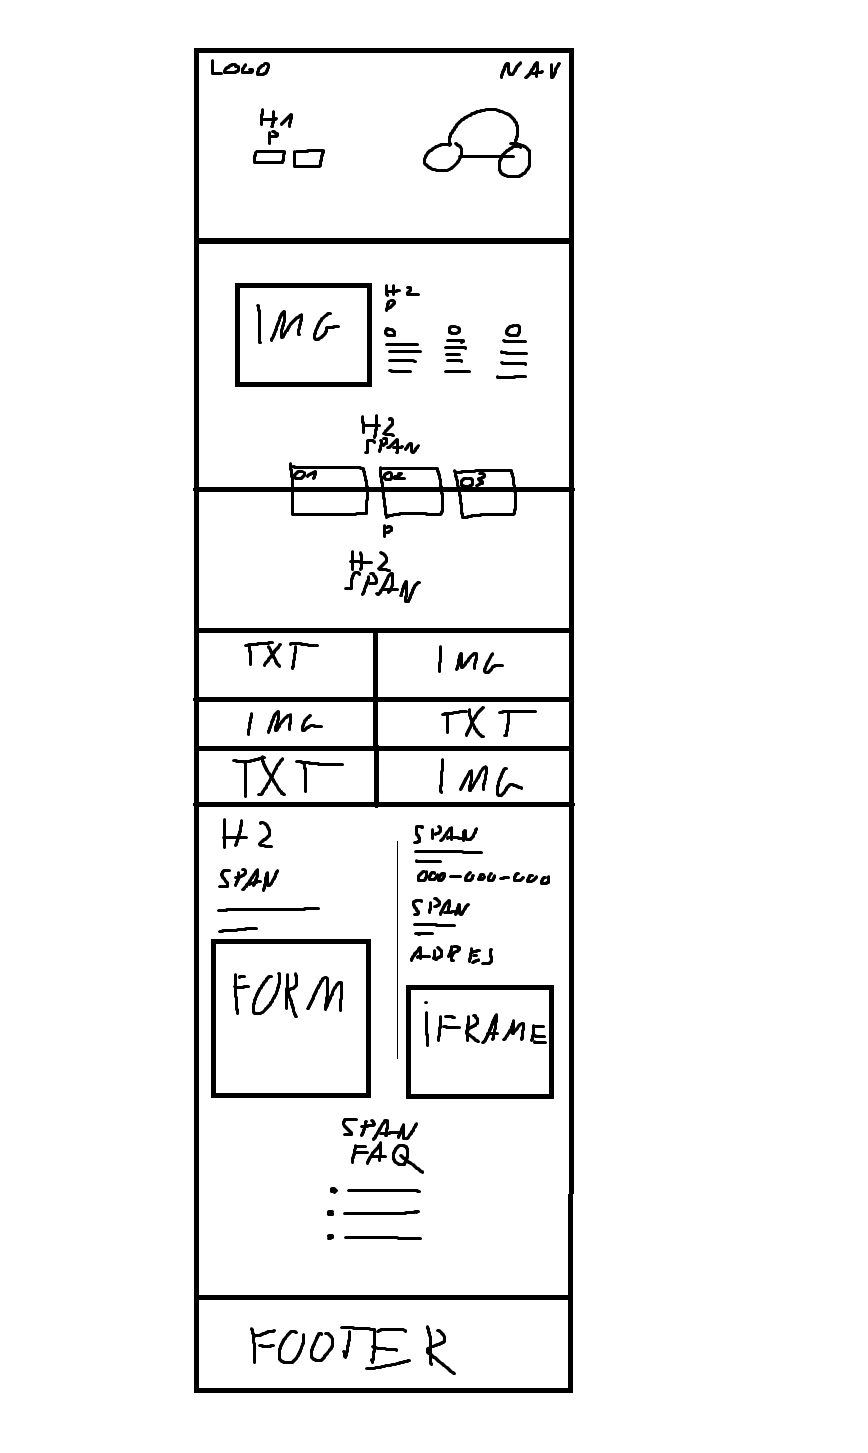 LOGO NAV
H1
P
IMG
H2
P
H2
SPAN
01 02 03
P
H2
SPAN
TXT IMG
IMG TXT
TXT IMG
H2
SPAN
FORM
SPAN
000-000-000
SPAN
ADRES
iFRAME
SPAN
FAQ
FOOTER